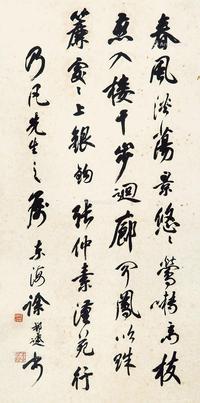 春風淡蕩景悠悠鶯囀高枝
燕入樓千步迴廊聞鳳吹珠
簾處處上銀鉤張仲素漢苑行
乃凡先生之屬東海徐邦達書